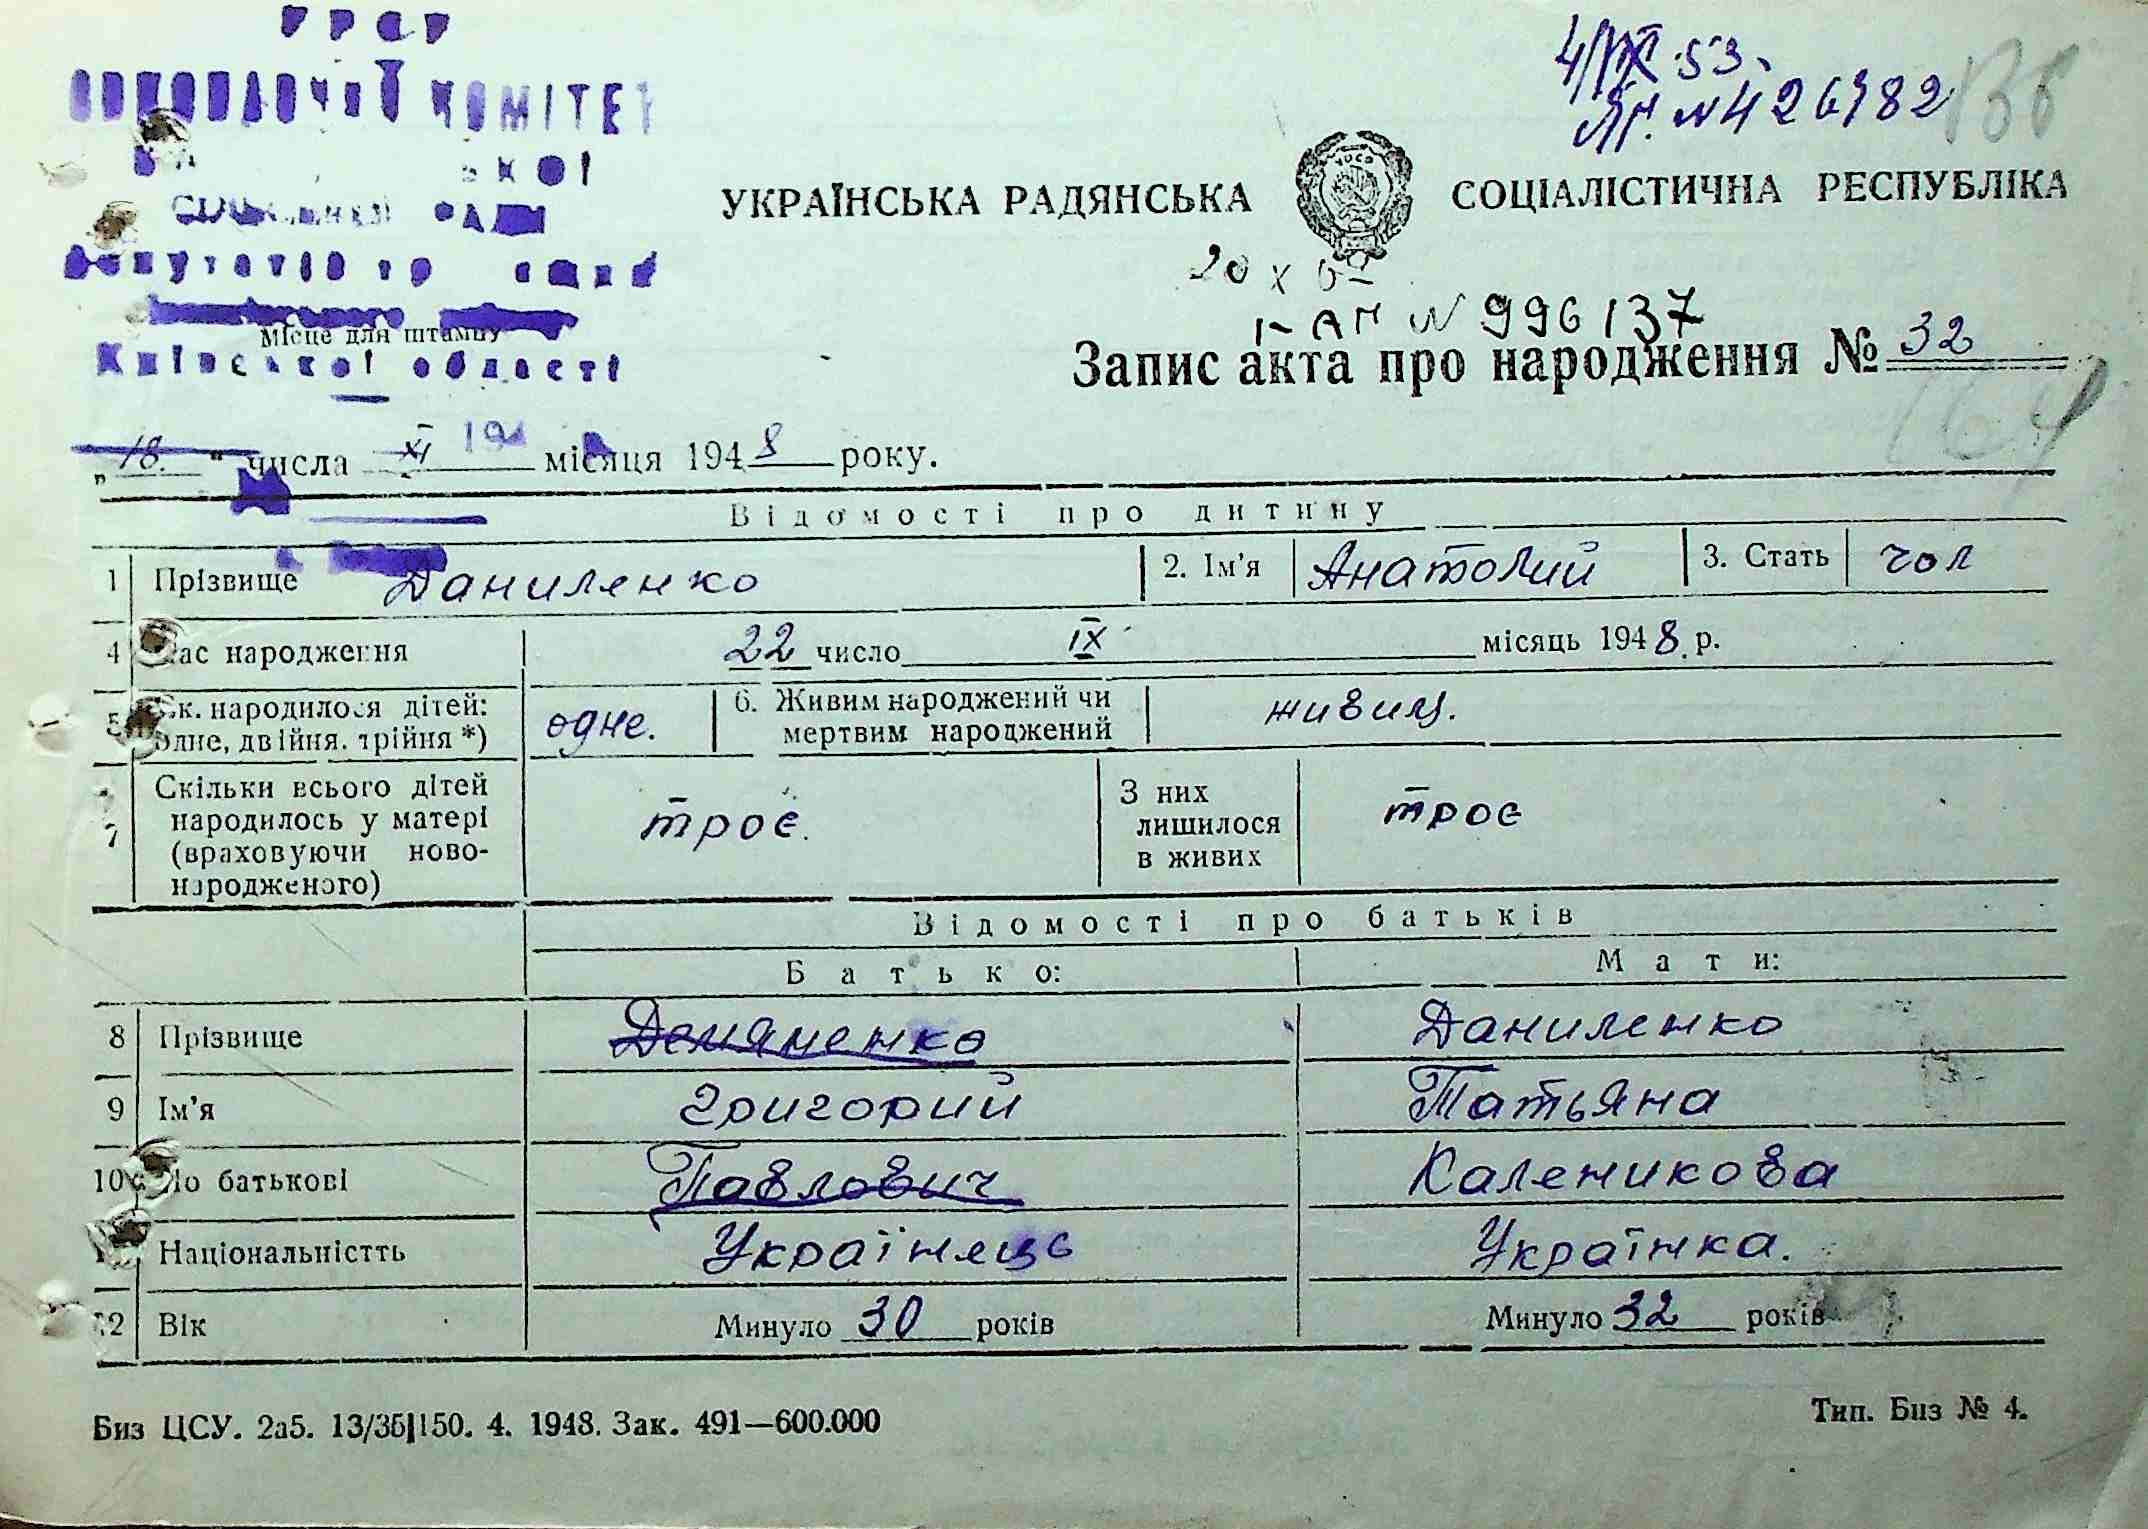 УРСР
ВИКОНАВЧИЙ КОМІТЕТ
депутатів
Місце для штампу
Київської області
4/IX 53.
№ 426982
УКРАЇНСЬКА РАДЯНСЬКА СОЦІАЛІСТИЧНА РЕСПУБЛІКА
20 X
№ 996137
Запис акта про народження № 32
„18." числа XI місяця 1948 року.
Відомості про дитину
1 Прізвище Даниленко 2. Ім'я Анатолий 3. Стать чол
4 Час народження 22 число IX місяць 1948 р.
5 Ск. народилося дітей: одне, двійня, трійня *) одне. 6. Живим народжений чи мертвим народжений живим.
7 Скільки всього дітей народилось у матері (враховуючи ново-народженого) троє. З них лишилося в живих троє
Відомості про батьків
Батько: Мати:
8 Прізвище Демяненко Даниленко
9 Ім'я Григорий Татьяна
10 По батькові Павлович Каленикова
11 Національністть Українець Українка.
12 Вік Минуло 30 років Минуло 32 років
Биз ЦСУ. 2а5. 13/35|150. 4. 1948. Зак. 491—600.000 Тип. Биз № 4.